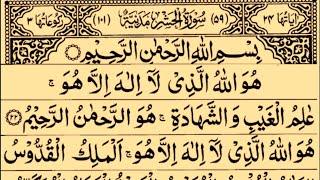 اٰيَاتُهَا ٢٤ (٥٩) سُوْرَةُ الْحَشْرِ مَدَنِيَّةٌ (١٠١) رُكُوْعَاتُهَا ٣
بِسْمِ اللّٰهِ الرَّحْمٰنِ الرَّحِيْمِ
هُوَ اللّٰهُ الَّذِىْ لَاۤ اِلٰهَ اِلَّا هُوَ ۚ
عٰلِمُ الْغَيْبِ وَ الشَّهَادَةِ ۚ هُوَ الرَّحْمٰنُ الرَّحِيْمُ ﴿٢٢﴾
هُوَ اللّٰهُ الَّذِىْ لَاۤ اِلٰهَ اِلَّا هُوَ ۚ اَلْمَلِكُ الْقُدُّوْسُ